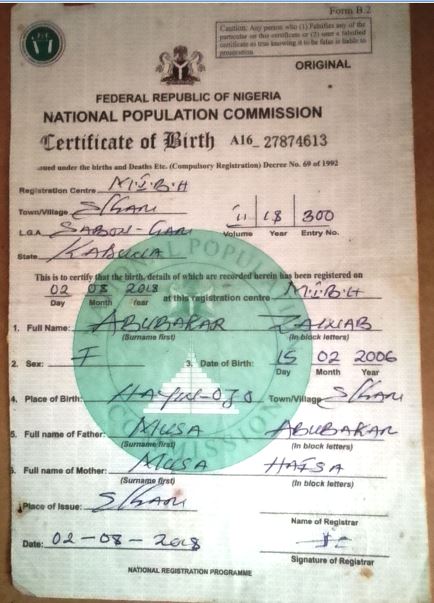 Form B.2
Caution: Any person who (1) Falsifies any of the
particular on this certificate or (2) uses a falsified
certificate as true knowing it to be false is liable to
prosecution
ORIGINAL
FEDERAL REPUBLIC OF NIGERIA
NATIONAL POPULATION COMMISSION
Certificate of Birth A16_ 27874613
issued under the births and Deaths Etc. (Compulsory Registration) Decree No. 69 of 1992
Registration Centre M.I.B.H
Town/Village S/Gari 11 18 300
L.G.A SABON-GARI Volume Year Entry No.
State KADUNA
This is to certify that the birth, details of which are recorded herein has been registered on
02 08 2018 at this registration centre M.I.B.H
Day Month Year
1. Full Name: ABUBAKAR ZAINAB
(Surname first) (In block letters)
2. Sex: F 3. Date of Birth: 15 02 2006
Day Month Year
4. Place of Birth: HAYIN-OJO Town/Village S/Gari
5. Full name of Father: MUSA ABUBAKAR
(Surname first) (In block letters)
6. Full name of Mother: MUSA HAFSA
(Surname first) (In block letters)
Place of Issue: S/GARI
Name of Registrar
Date: 02-08-2018
Signature of Registrar
NATIONAL REGISTRATION PROGRAMME